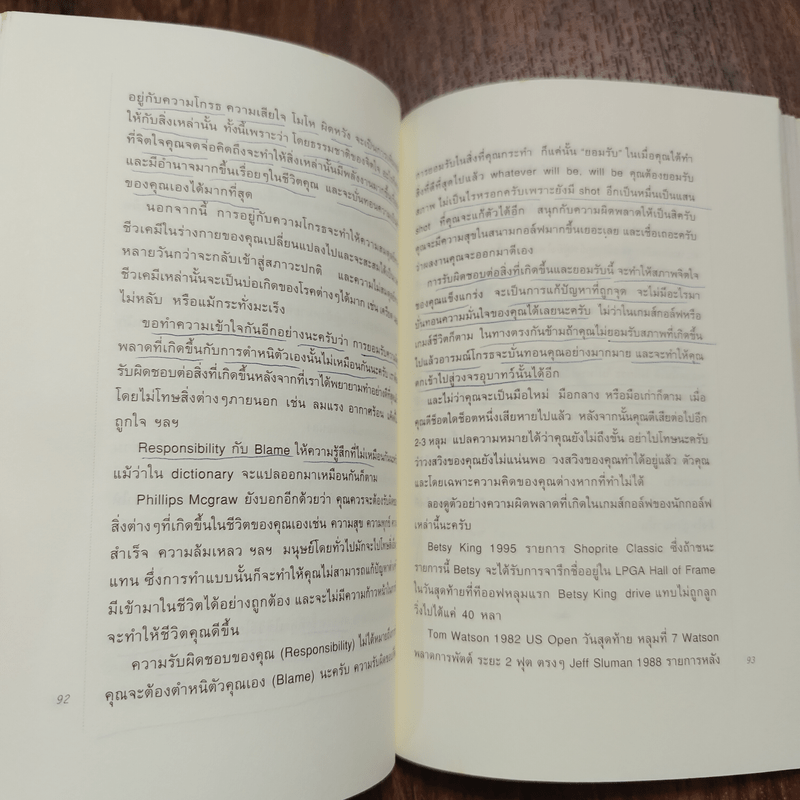 อยู่กับความโกรธ ความเสียใจ โมโห ผิดหวัง จะเป็นการ
ให้กับสิ่งเหล่านั้น ทั้งนี้เพราะว่า โดยธรรมชาติของจิตใจ
ที่จิตใจคุณจดจ่อคิดถึงจะทำให้สิ่งเหล่านั้นมีพลังงานมากขึ้น
และมีอำนาจมากขึ้นเรื่อยๆในชีวิตคุณ และจะบั่นทอนความ
ของคุณเองได้มากที่สุด
นอกจากนี้ การอยู่กับความโกรธจะทำให้ความสมดุล
ชีวเคมีในร่างกายของคุณเปลี่ยนแปลงไปและจะสะสมไว้เป็น
หลายวันกว่าจะกลับเข้าสู่สภาวะปกติ และความไม่สมดุล
ชีวเคมีเหล่านั้นจะเป็นบ่อเกิดของโรคต่างๆได้มาก เช่น เครียด
ไม่หลับ หรือแม้กระทั่งมะเร็ง
ขอทำความเข้าใจกันอีกอย่างนะครับว่า การยอมรับความ
พลาดที่เกิดขึ้นกับการตำหนิตัวเองนั้นไม่เหมือนกันนะครับ
รับผิดชอบต่อสิ่งที่เกิดขึ้นหลังจากที่เราได้พยายามทำอย่างดีที่สุด
โดยไม่โทษสิ่งต่างๆภายนอก เช่น ลมแรง อากาศร้อน
ถูกใจ ฯลฯ
Responsibility กับ Blame ให้ความรู้สึกที่ไม่เหมือนกัน
แม้ว่าใน dictionary จะแปลออกมาเหมือนกันก็ตาม
Phillips Mcgraw ยังบอกอีกด้วยว่า คุณควรจะต้องรับผิดชอบ
สิ่งต่างๆที่เกิดขึ้นในชีวิตของคุณเองเช่น ความสุข ความทุกข์
สำเร็จ ความล้มเหลว ฯลฯ มนุษย์โดยทั่วไปมักจะไปโทษสิ่ง
แทน ซึ่งการทำแบบนั้นก็จะทำให้คุณไม่สามารถแก้ปัญหา
มีเข้ามาในชีวิตได้อย่างถูกต้อง และจะไม่มีความก้าวหน้า
จะทำให้ชีวิตคุณดีขึ้น
ความรับผิดชอบของคุณ (Responsibility) ไม่ได้หมายถึง
คุณจะต้องตำหนิตัวคุณเอง (Blame) นะครับ ความรับผิดชอบ
92
การยอมรับในสิ่งที่คุณกระทำ ก็แค่นั้น "ยอมรับ" ในเมื่อคุณได้ทำ
สิ่งที่ดีที่สุดไปแล้ว whatever will be, will be คุณต้องยอมรับ
สภาพ ไม่เป็นไรหรอกครับเพราะยังมี shot อีกเป็นหมื่นเป็นแสน
shot ที่คุณจะแก้ตัวได้อีก สนุกกับความผิดพลาดให้เป็นสิครับ
คุณจะมีความสุขในสนามกอล์ฟมากขึ้นเยอะเลย และเชื่อเถอะครับ
ว่าผลงานคุณจะออกมาดีเอง
การรับผิดชอบต่อสิ่งที่เกิดขึ้นและยอมรับนี้ จะทำให้สภาพจิตใจ
ของคุณแข็งแกร่ง จะเป็นการแก้ปัญหาที่ถูกจุด จะไม่มีอะไรมา
บั่นทอนความมั่นใจของคุณได้เลยนะครับ ไม่ว่าในเกมส์กอล์ฟหรือ
เกมส์ชีวิตก็ตาม ในทางตรงกันข้ามถ้าคุณไม่ยอมรับสภาพที่เกิดขึ้น
ไปแล้วอารมณ์โกรธจะบั่นทอนคุณอย่างมากมาย และจะทำให้คุณ
ตกเข้าไปสู่วงจรอุบาทว์นั้นได้อีก
และไม่ว่าคุณจะเป็นมือใหม่ มือกลาง หรือมือเก่าก็ตาม เมื่อ
คุณตีช็อตใดช็อตหนึ่งเสียหายไปแล้ว หลังจากนั้นคุณตีเสียต่อไปอีก
2-3 หลุม แปลความหมายได้ว่าคุณยังไม่ถึงขั้น อย่าไปโทษนะครับ
ว่าวงสวิงของคุณยังไม่แน่นพอ วงสวิงของคุณทำได้อยู่แล้ว ตัวคุณ
และโดยเฉพาะความคิดของคุณต่างหากที่ทำไม่ได้
ลองดูตัวอย่างความผิดพลาดที่เกิดในเกมส์กอล์ฟของนักกอล์ฟ
เหล่านี้นะครับ
Betsy King 1995 รายการ Shoprite Classic ซึ่งถ้าชนะ
รายการนี้ Betsy จะได้รับการจารึกชื่ออยู่ใน LPGA Hall of Frame
ในวันสุดท้ายที่ทีออฟหลุมแรก Betsy King drive แทบไม่ถูกลูก
วิ่งไปได้แค่ 40 หลา
Tom Watson 1982 US Open วันสุดท้าย หลุมที่ 7 Watson
พลาดการพัตต์ ระยะ 2 ฟุต ตรงๆ Jeff Sluman 1988 รายการหลัง
93